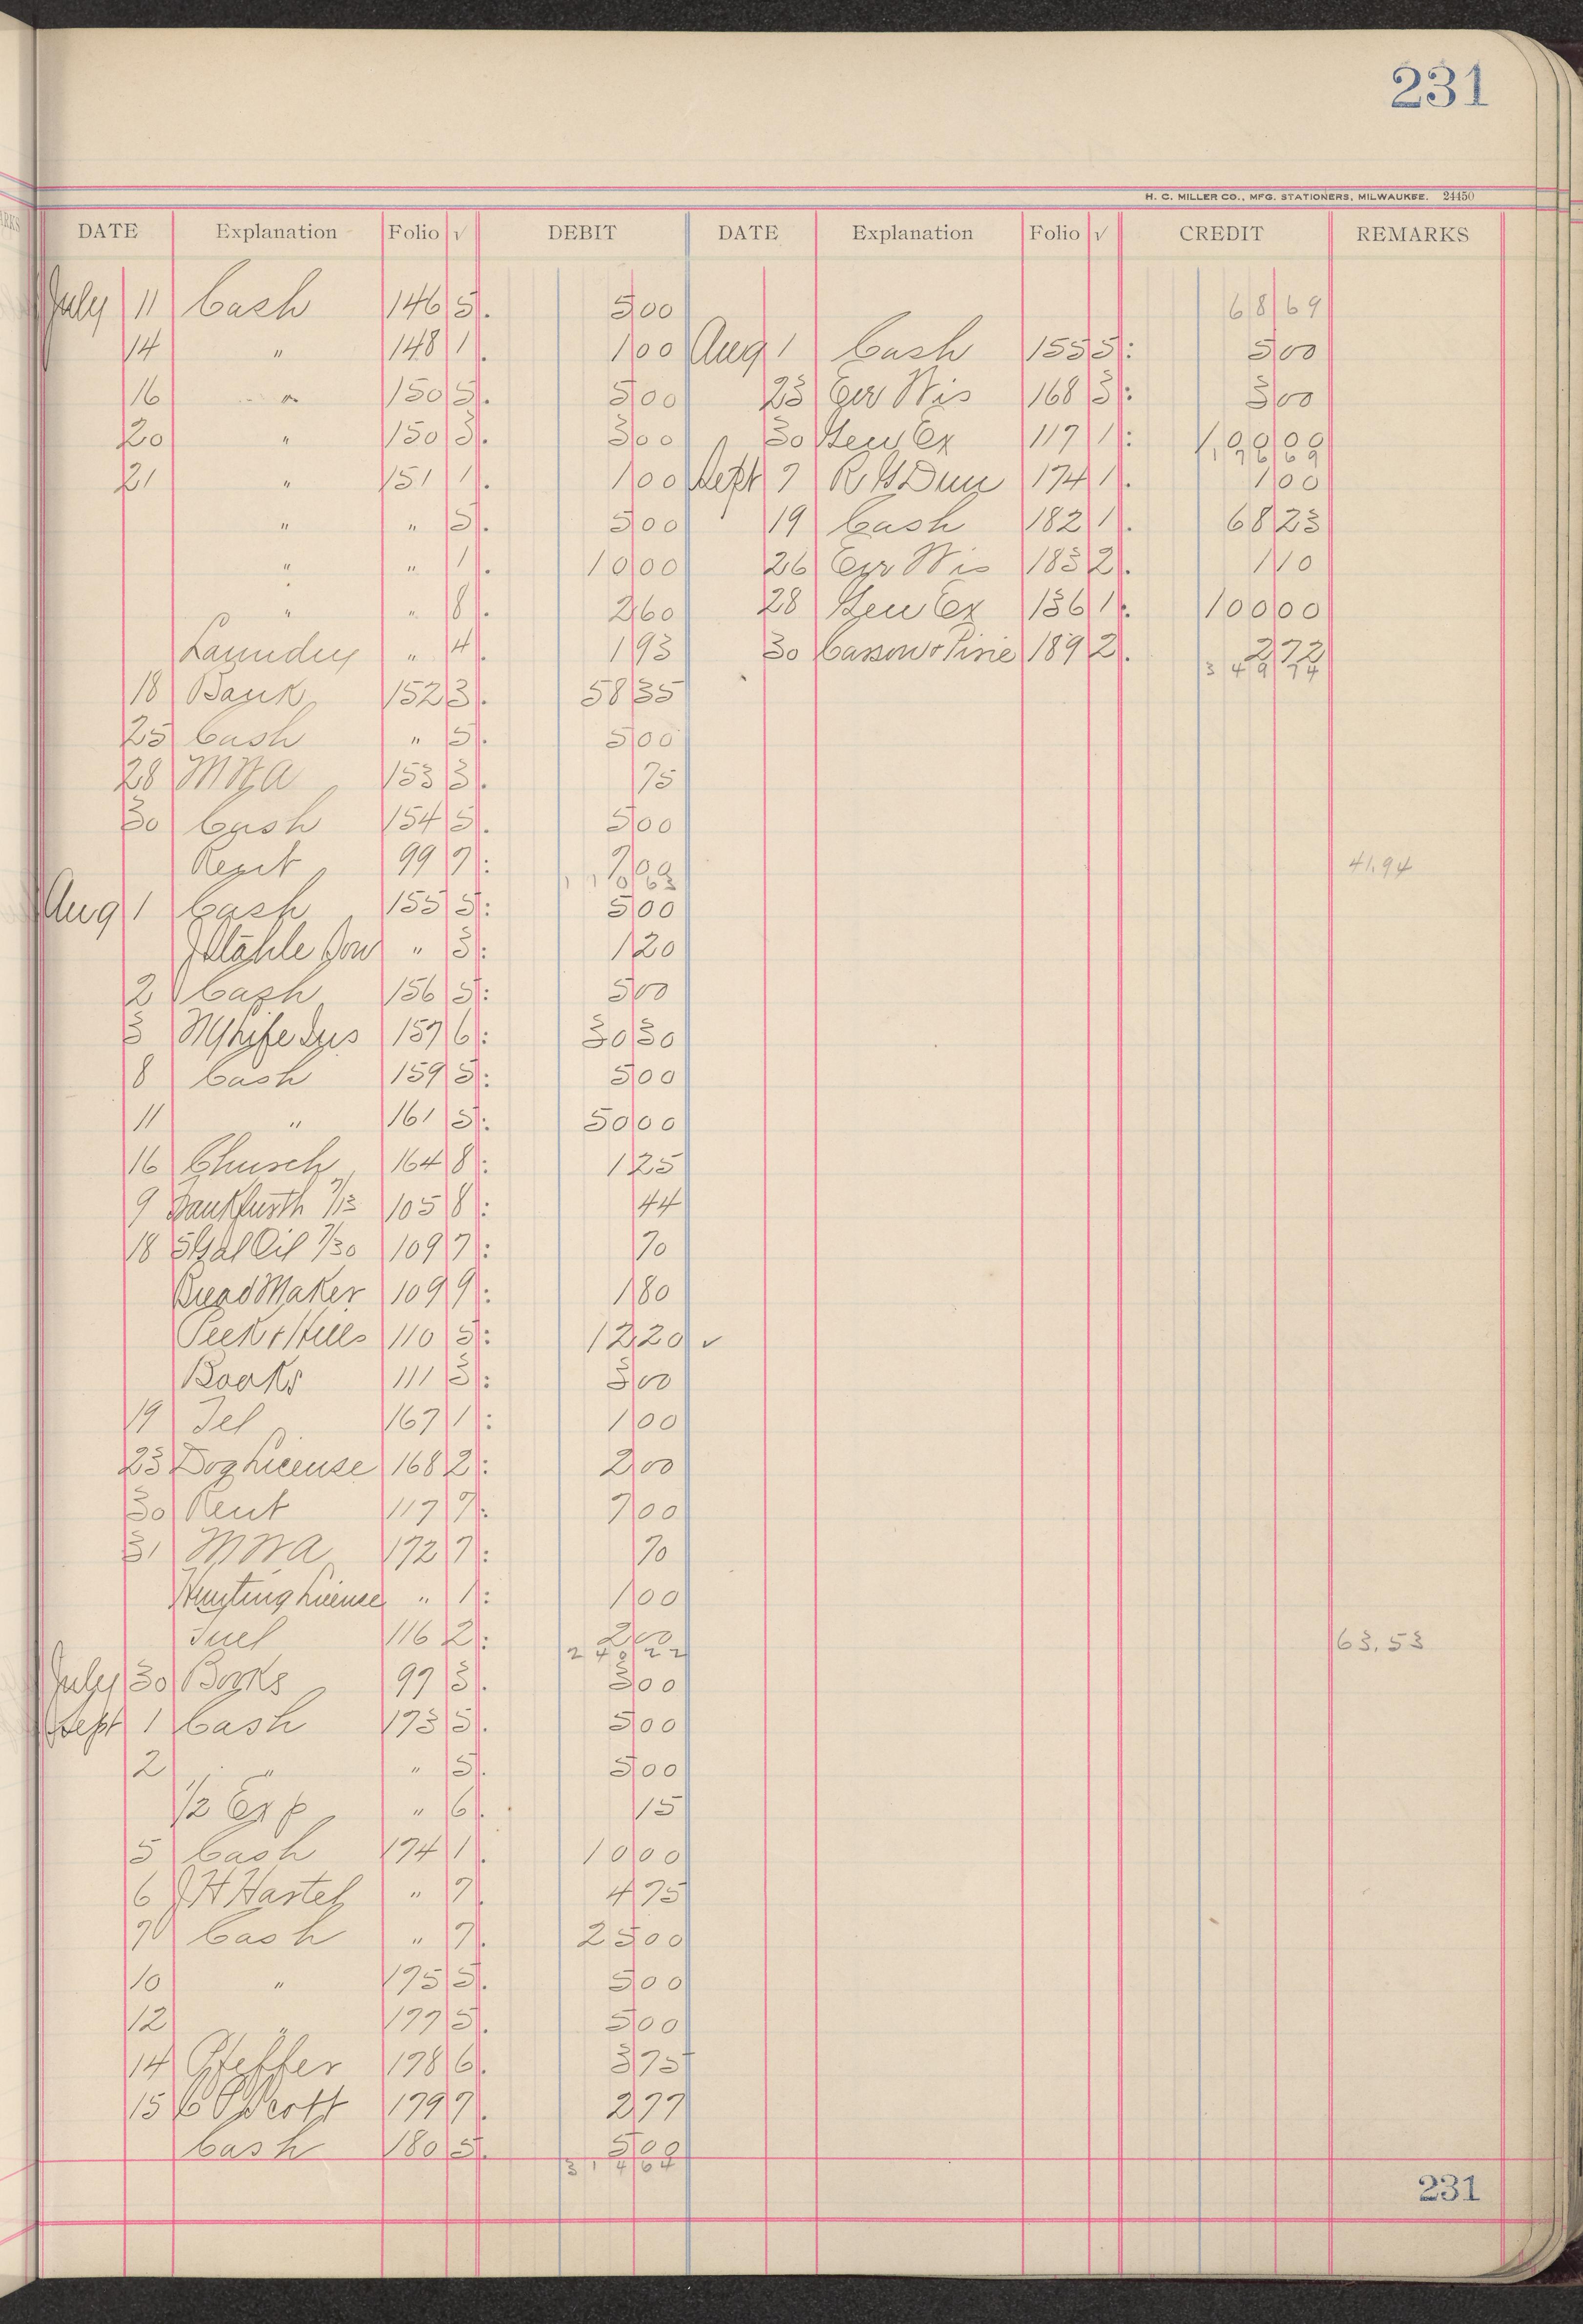 231
H. C. MILLER CO., MFG. STATIONERS, MILWAUKEE. 24450
DATE Explanation Folio √ DEBIT DATE Explanation Folio √ CREDIT REMARKS
July 11 Cash 146 5. 500 6869
14 " 148 1. 100 Aug 1 Cash 155 5: 500
16 " 150 5. 500 23 Err Wis 168 3: 300
20 " 150 3. 300 30 Gen Ex 117 1:
21 " 151 1. 100 Sept 7 R G Dun 174 1. 100
" " 5. 500 19 Cash 182 1. 6823
" " 1. 1000 26 Err Wis 2. 110
" " 8. 260 28 Gen Ex 1. 10000
Laundry " 4. 193 30 189 2. 272
3 49 74
18 Bank 152 3. 5835
25 Cash " 5. 500
28 MWA 153 3. 75
30 Cash 154 5. 500
Rent 99 7: 700 41.94
1 1 0 63
Aug 1 Cash 155 5: 500
" 3: 120
2 Cash 156 5: 500
3 157 6: 3030
8 Cash 159 5: 500
11 " 161 5: 5000
16 Church 164 8: 125
9 Frankfurth 7/13 105 8: 44
18 5 Gal Oil 7/30 109 7: 70
Bread Maker 109 9: 180
110 5: 1220 ✓
Books 111 3: 300
19 Tel 167 1: 100
23 Dog License 168 2: 200
30 Rent 117 7: 700
31 MWA 172 7: 70
Hunting License " 1: 100
Fuel 116 2: 200 63.53
2 40 22
July 30 Books 99 3. 300
Sept 1 Cash 173 5. 500
2 " " 5. 500
1/2 Exp " 6. 15
5 Cash 174 1. 1000
6 J H Hartel " 7. 475
7 Cash " 7. 2500
10 " 175 5. 500
12 " 177 5. 500
14 Pfeffer 178 6. 375
15 179 7. 277
Cash 180 5. 500
3 1 4 64
231